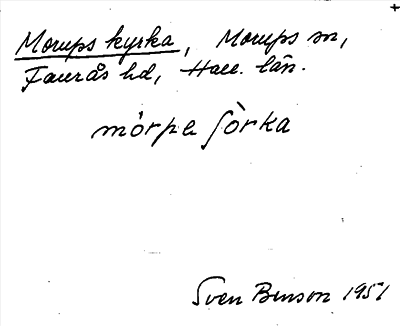 Morups kyrka, Morups sn,
Faurås hd, Hall. län.
mòrpa ʃòrka
Sven Benson 1951